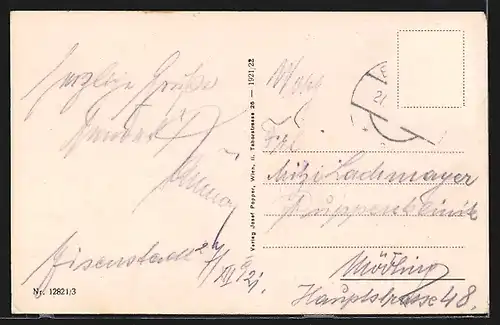 Herzliche Grüße
Eisenstadt 24/XII 21.
Nr. 12821/3
Verlag Josef Popper, Wien, II. Taborstrasse 26 — 1921/22
Frl.
Mitzi Lachmayer
Puppenklinik
Mödling
Hauptstrasse 48.